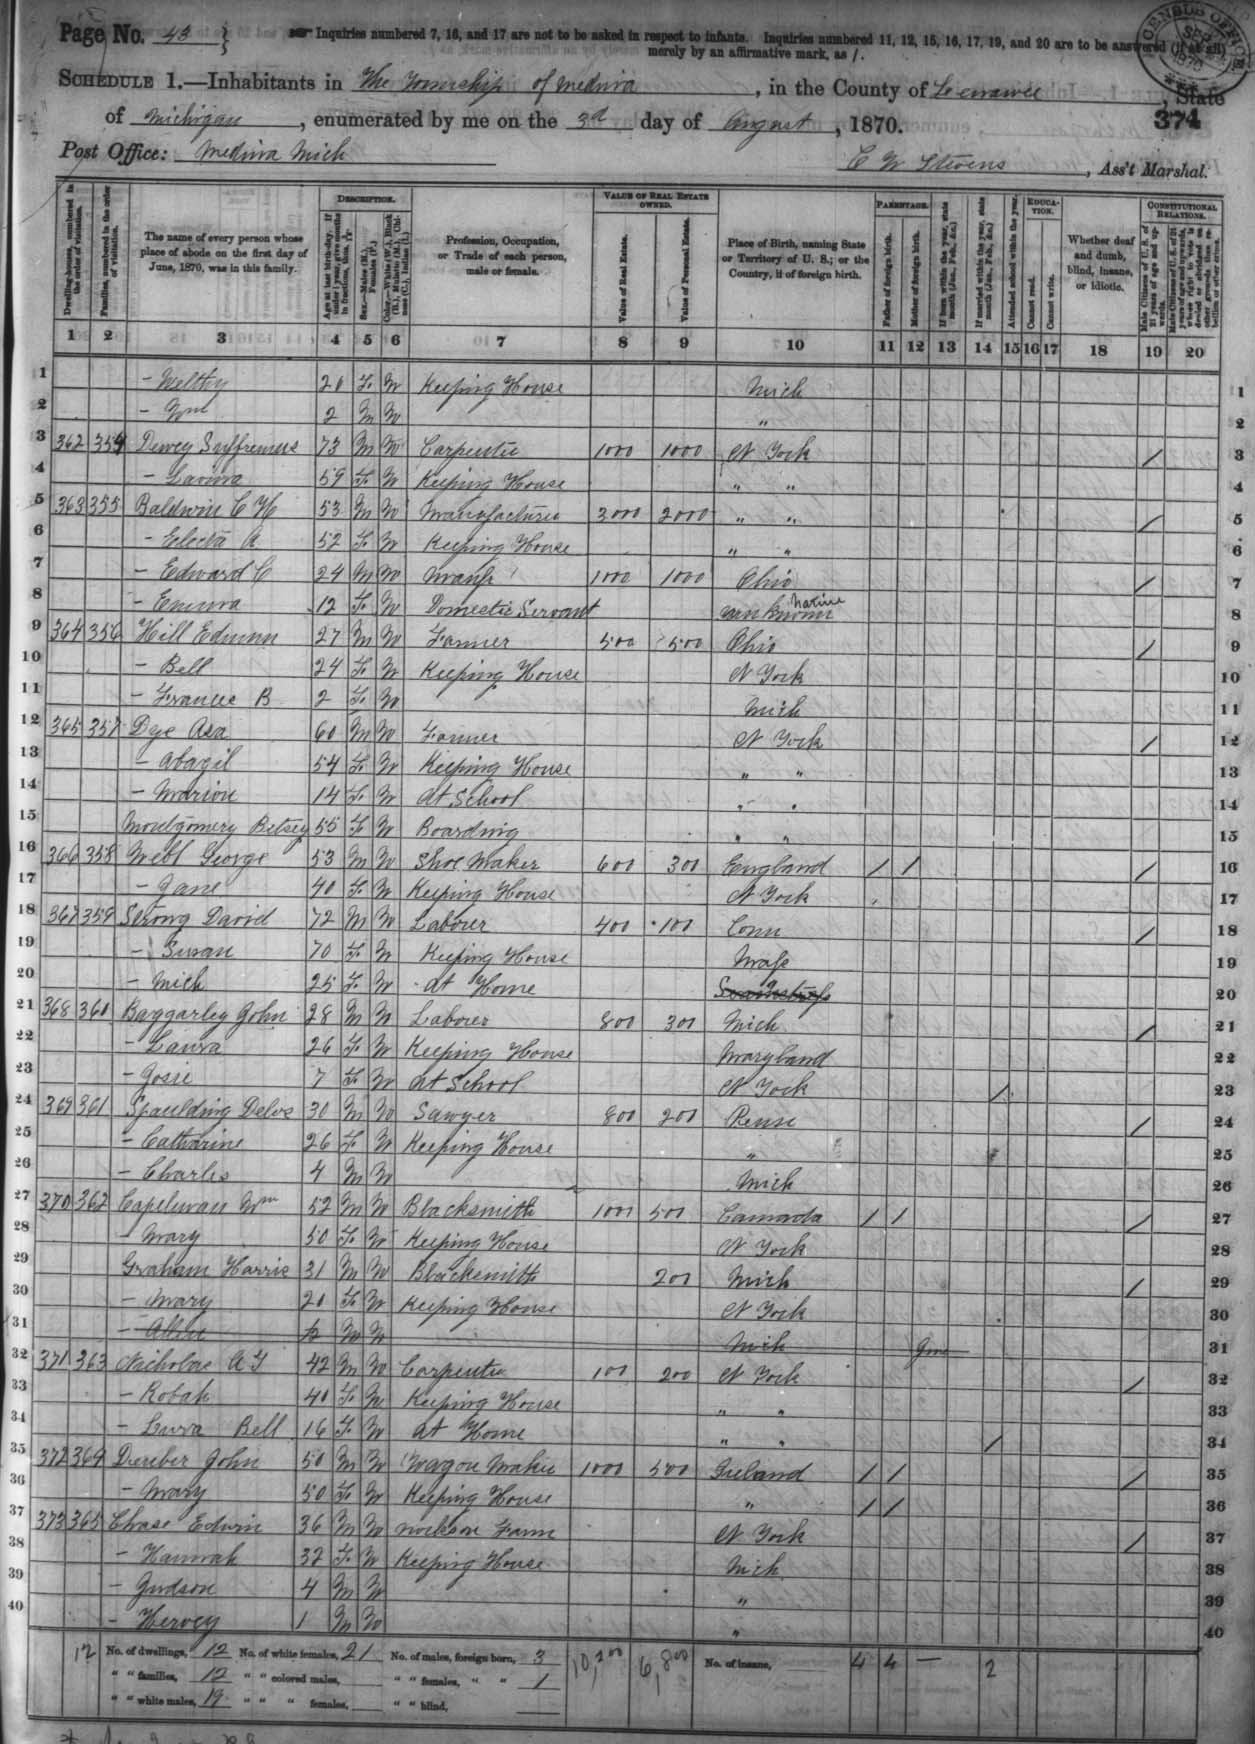 Page No. 43
Inquiries numbered 7, 16, and 17 are not to be asked in respect to infants. Inquiries numbered 11, 12, 15, 16, 17, 19, and 20 are to be answered (if at all)
merely by an affirmative mark, as /.
CENSUS OFFICE 1870
SCHEDULE 1.—Inhabitants in The Township of Medina, in the County of Lenawee, State
of Michigan, enumerated by me on the 3d day of August, 1870.
374
Post Office: Medina Mich
C W Stevens, Ass't Marshal.
DESCRIPTION. VALUE OF REAL ESTATE OWNED. PARENTAGE. EDUCATION. CONSTITUTIONAL RELATIONS.
Dwelling-houses, numbered in the order of visitation.
Families, numbered in the order of visitation.
The name of every person whose place of abode on the first day of June, 1870, was in this family.
Age at last birth-day. If under 1 year, give months in fractions, thus,
Sex.—Males (M.), Females (F.)
Color.—White (W.), Black (B.), Mulatto (M.), Chinese (C.), Indian (I.)
Profession, Occupation, or Trade of each person, male or female.
Value of Real Estate.
Value of Personal Estate.
Place of Birth, naming State or Territory of U. S.; or the Country, if of foreign birth.
Father of foreign birth.
Mother of foreign birth.
If born within the year, state month (Jan., Feb., &c.)
If married within the year, state month (Jan., Feb., &c.)
Attended school within the year.
Cannot read.
Cannot write.
Whether deaf and dumb, blind, insane, or idiotic.
Male Citizens of U. S. of 21 years of age and upwards.
Male Citizens of U. S. of 21 years of age and upwards, whose right to vote is denied or abridged on other grounds than rebellion or other crime.
1 2 3 4 5 6 7 8 9 10 11 12 13 14 15 16 17 18 19 20
1 – Welthy 20 F W Keeping House Mich 1
2 – Wm 2 M W " 2
3 362 354 Dewey Suffrenus 73 M W Carpenter 1000 1000 N York / 3
4 – Lavina 59 F W Keeping House " " 4
5 363 355 Baldwin C H 53 M W Manufacturer 3000 2000 " " / 5
6 – Electa A 52 F W Keeping House " " 6
7 – Edward C 24 M W Manfr 1000 1000 Ohio / 7
8 – Emma 12 F W Domestic Servant unknown Native 8
9 364 356 Hill Edwin 27 M W Farmer 500 500 Ohio / 9
10 – Bell 24 F W Keeping House N York 10
11 – Frances B 2 F W Mich 11
12 365 357 Dye Asa 60 M W Farmer N York / 12
13 – Abagil 54 F W Keeping House " " 13
14 – Marion 14 F W At School " " 14
15 Montgomery Betsey 55 F W Boarding " " 15
16 366 358 Webb George 53 M W Shoe Maker 600 300 England / / / 16
17 – Jane 40 F W Keeping House N York 17
18 367 359 Strong David 72 M W Labourer 400 100 Conn / 18
19 – Susan 70 F W Keeping House Mass 19
20 – Mich 25 F W At Home 20
21 368 360 Baggarley John 28 M W Laborer 800 300 Mich / 21
22 – Laura 26 F W Keeping House Maryland 22
23 – Josie 7 F W At School N York / 23
24 369 361 Spaulding Delos 30 M W Sawyer 800 200 Penn / 24
25 – Catharine 26 F W Keeping House " 25
26 – Charles 4 M W Mich 26
27 370 362 Wm 52 M W Blacksmith 1000 500 Cannada / / / 27
28 – Mary 50 F W Keeping House N York 28
29 Graham Harris 31 M W Blacksmith 200 Mich / 29
30 – Mary 20 F W Keeping House N York 30
31 – W Mich 31
32 371 363 Nicholas A G 42 M W Carpenter 100 200 N York / 32
33 – Robah 40 F W Keeping House " " 33
34 – Lura Bell 16 F W At Home " " / 34
35 372 364 John 50 M W Wagon Maker 1000 500 Ireland / / / 35
36 – Mary 50 F W Keeping House " / / 36
37 373 365 Chase Edwin 36 M W works on Farm N York / 37
38 – Hannah 32 F W Keeping House Mich 38
39 – Judson 4 M W " 39
40 – Hervey 1 M W " 40
12 No. of dwellings, 12 No. of white females, 21 No. of males, foreign born, 3 10,200 6,800 No. of insane, 4 4 – 2
" " families, 12 " " colored males, " " females, " " 1
" " white males, 19 " " " females, " " blind,